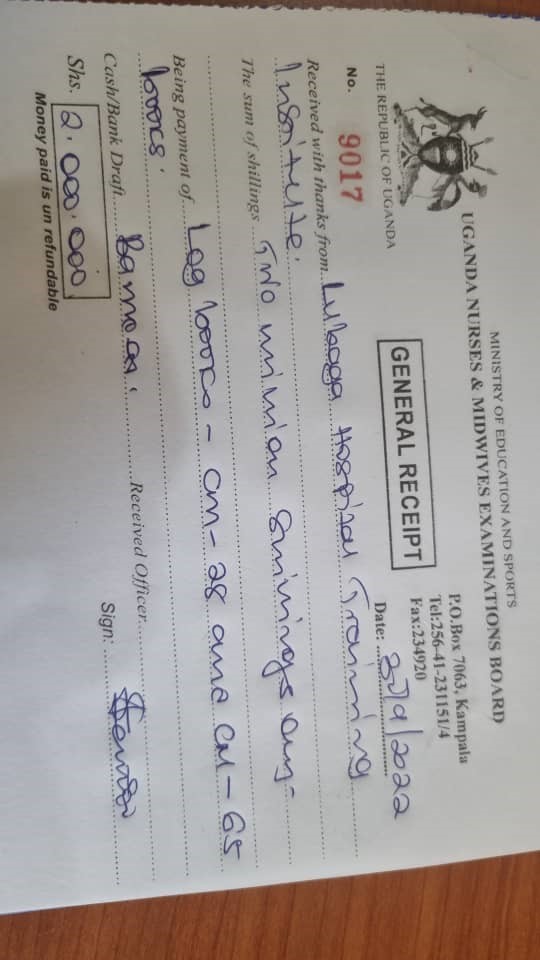 MINISTRY OF EDUCATION AND SPORTS
UGANDA NURSES & MIDWIVES EXAMINATIONS BOARD
THE REPUBLIC OF UGANDA
P.O.Box 7063, Kampala
Tel:256-41-231151/4
Fax:234920
GENERAL RECEIPT
No. 9017
Date: 30/9/2022
Received with thanks from Lubaga Hospital Training
Institute.
The sum of shillings Two million Shillings only-
Being payment of Log books - CM- 28 and CN - 65
books.
Cash/Bank Draft Received Officer
Shs. 2.000.000 Sign:
Money paid is un refundable